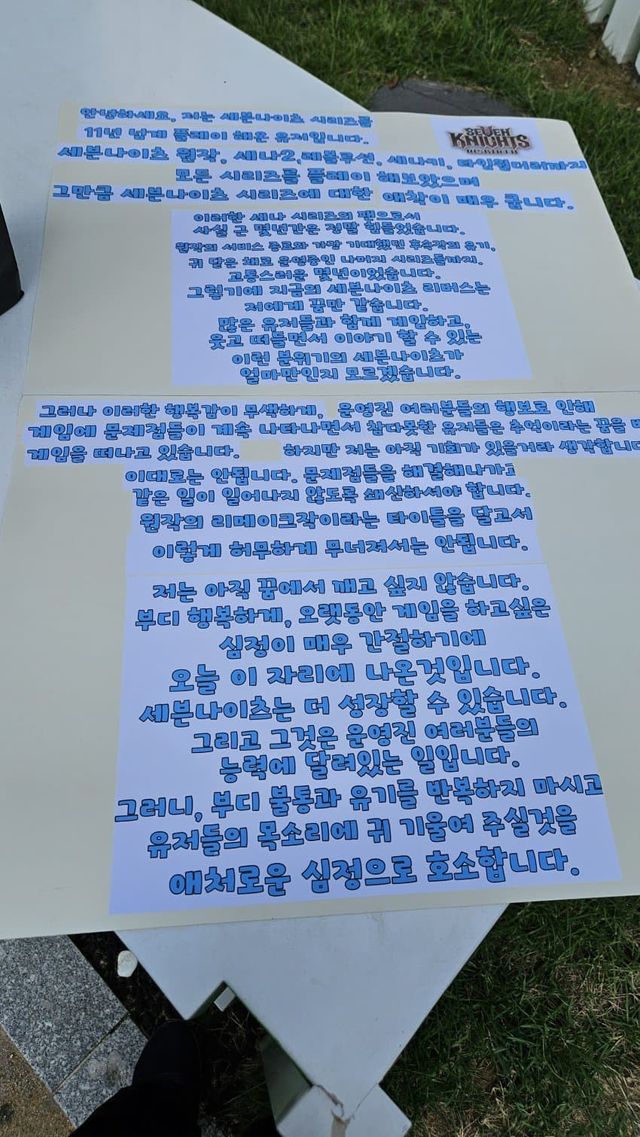 안녕하세요, 저는 세븐나이츠 시리즈를
11년 넘게 플레이 해온 유저입니다.
SEVEN
KNIGHTS
RE:BIRTH
세븐나이츠 원작, 세나2, 레볼루션, 세나키, 타임원더러까지
모든 시리즈를 플레이 해보았으며
그만큼 세븐나이츠 시리즈에 대한 애착이 매우 큽니다.
이러한 세나 시리즈의 팬으로서
사실 근 몇년간은 정말 힘들었습니다.
원작의 서비스 종료와 가장 기대했던 후속작의 유기,
귀 닫은 채로 운영중인 나머지 시리즈들까지.
고통스러운 몇년이었습니다.
그렇기에 지금의 세븐나이츠 리버스는
저에게 꿈만 같습니다.
많은 유저들과 함께 게임하고,
웃고 떠들면서 이야기 할 수 있는
이런 분위기의 세븐나이츠가
얼마만인지 모르겠습니다.
그러나 이러한 행복감이 무색하게, 운영진 여러분들의 행보로 인해
게임에 문제점들이 계속 나타나면서 참다못한 유저들은 추억이라는 꿈을
게임을 떠나고 있습니다. 하지만 저는 아직 기회가 있을거라 생각합니다
이대로는 안됩니다. 문제점들을 해결해나가고
같은 일이 일어나지 않도록 쇄신하셔야 합니다.
원작의 리메이크작이라는 타이틀을 달고서
이렇게 허무하게 무너져서는 안됩니다.
저는 아직 꿈에서 깨고 싶지 않습니다.
부디 행복하게, 오랫동안 게임을 하고싶은
심정이 매우 간절하기에
오늘 이 자리에 나온것입니다.
세븐나이츠는 더 성장할 수 있습니다.
그리고 그것은 운영진 여러분들의
능력에 달려있는 일입니다.
그러니, 부디 불통과 유기를 반복하지 마시고
유저들의 목소리에 귀 기울여 주실것을
애처로운 심정으로 호소합니다.